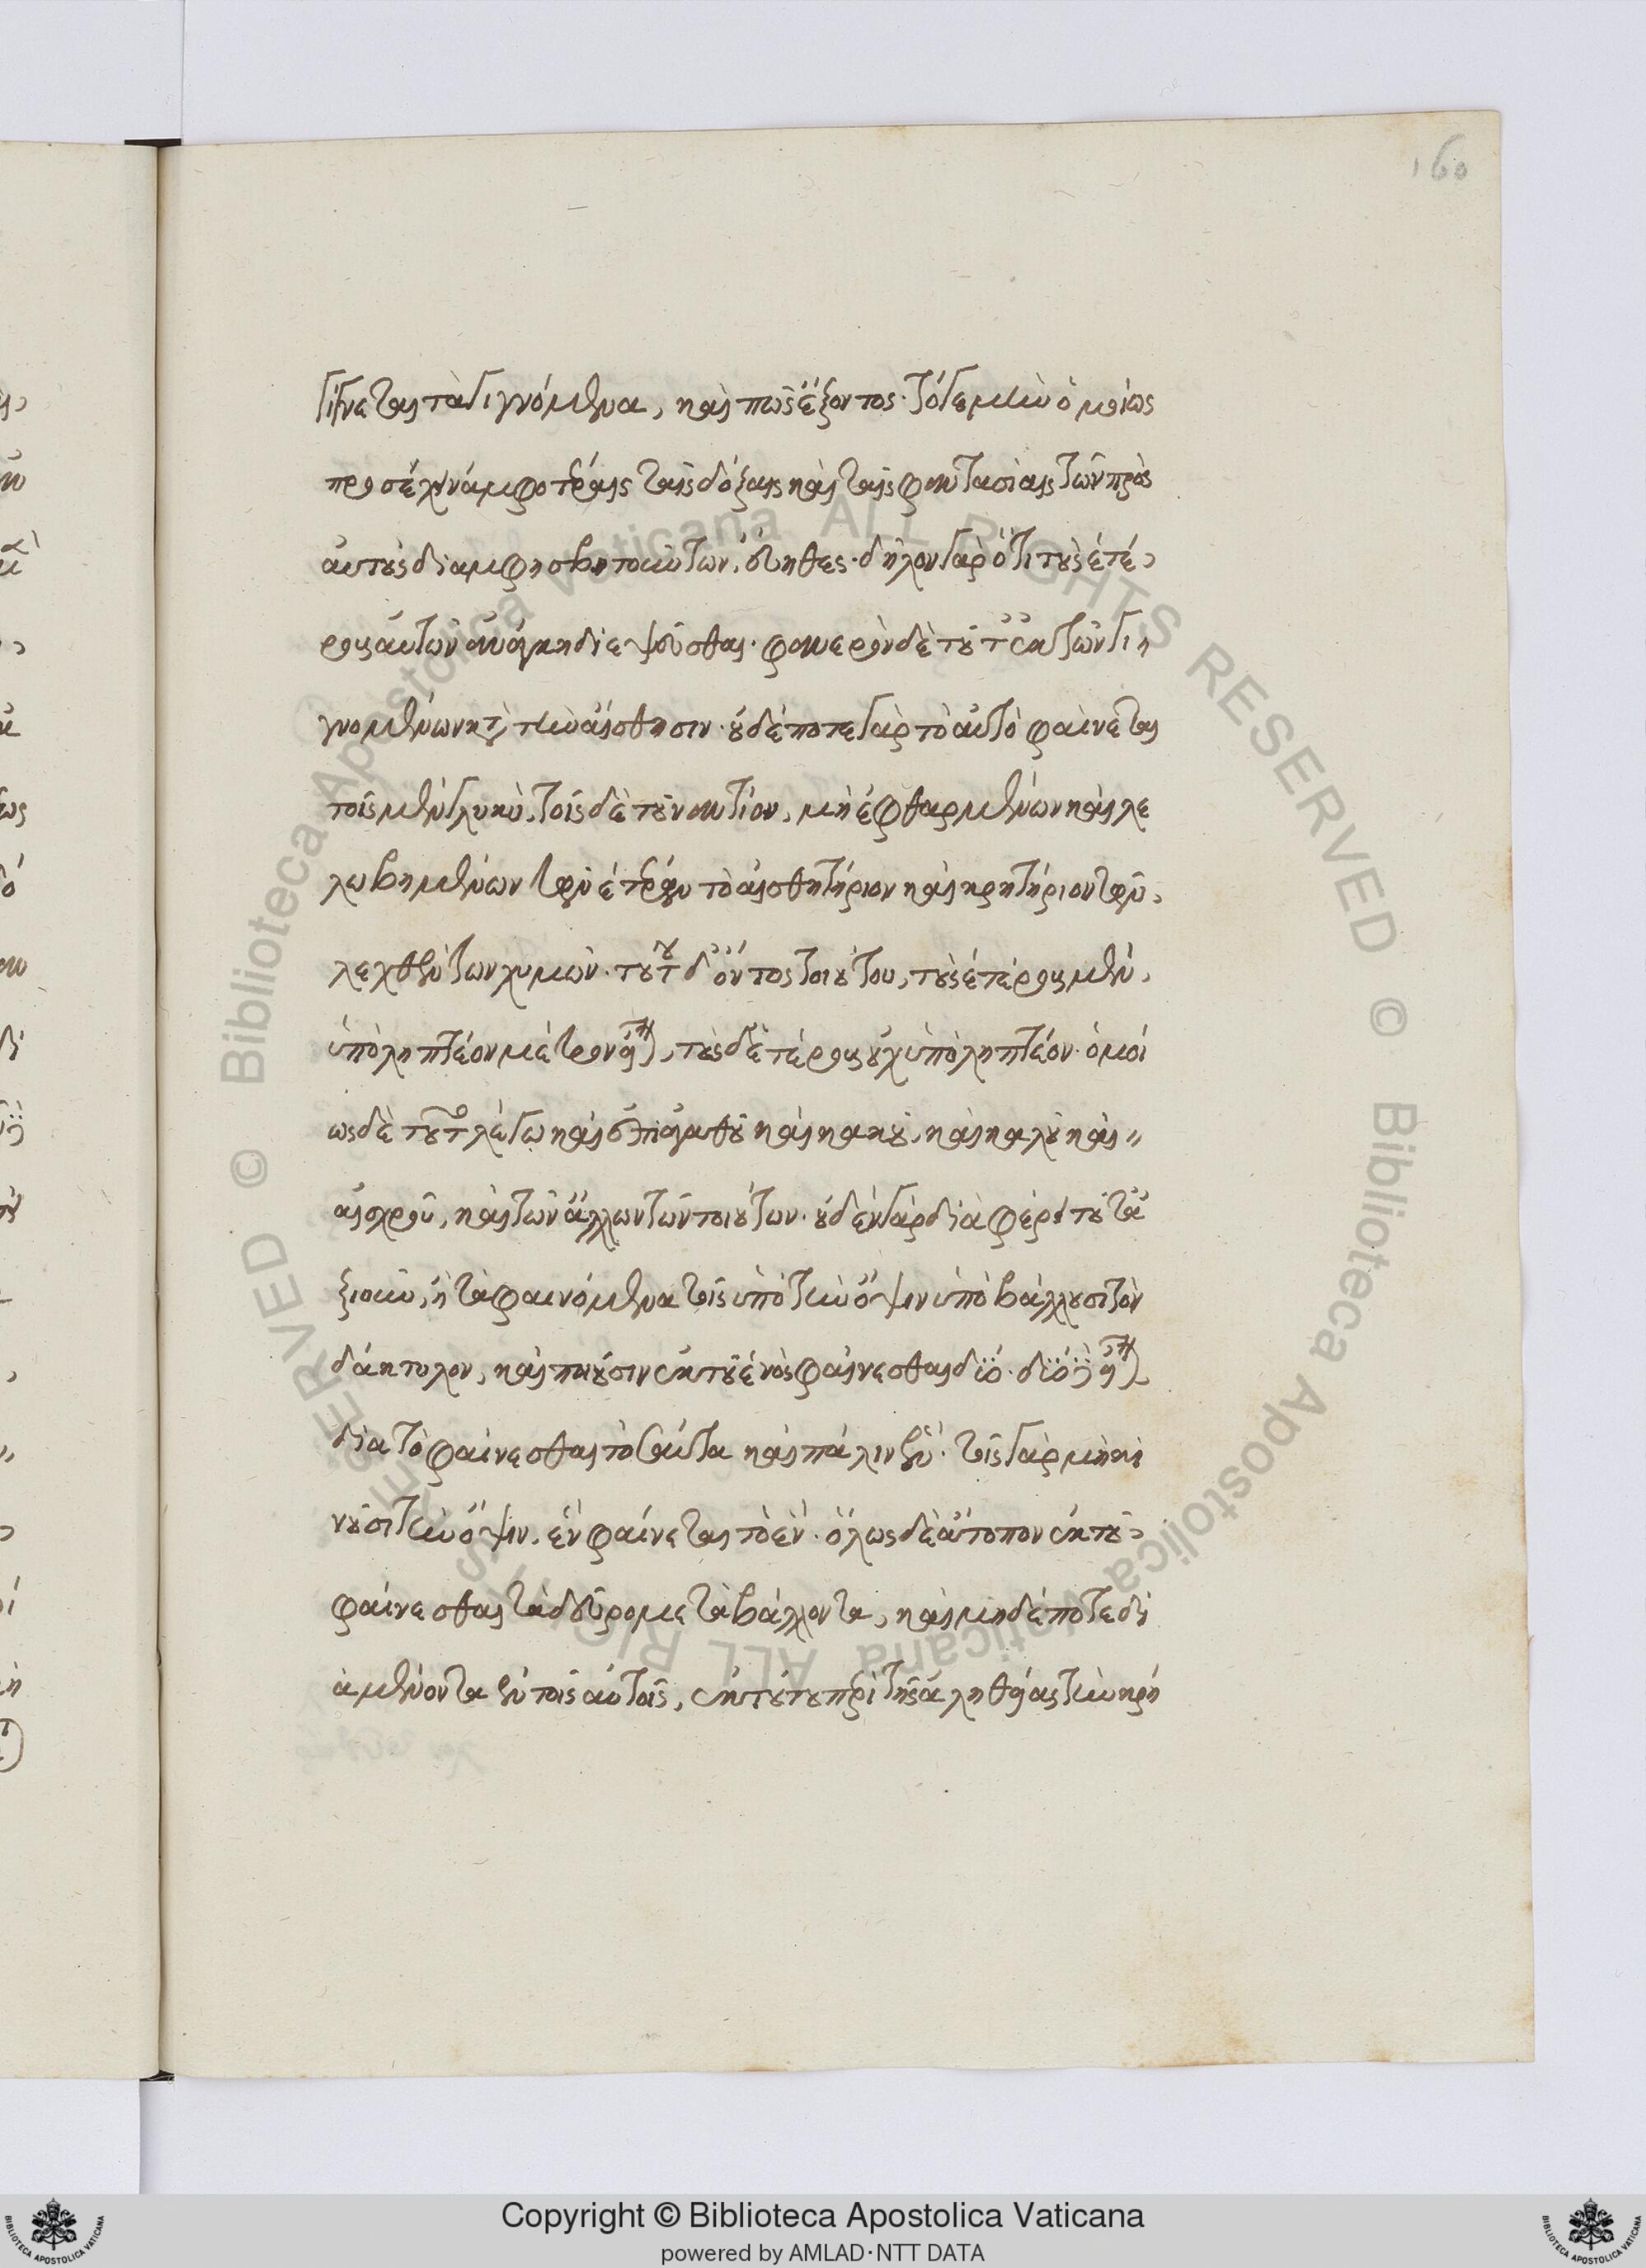 160
γίγνεται τὰ γιγνόμενα, καὶ πῶς ἔξοντος. τόγε μὴν ὁμοίως
προσέχειν ἀμφοτέραις ταῖς δόξαις καὶ ταῖς φαντασίαις τῶν πρὸς
αὐτοὺς διαμφησβητούντων, εὔηθες. δῆλον γὰρ ὅτι τοὺς ἑτέ
ρους αὐτῶν ἀνάγκη διεψεῦσθαι. φανερὸν δὲ τοῦτο ἐκ τῶν γι
γνομένων κατὰ τὴν αἴσθησιν. οὐδέποτε γὰρ τὸ αὐτὸ φαίνεται
τοῖς μὲν γλυκὺ, τοῖς δὲ τοὐναντίον, μὴ ἐφθαρμένων καὶ λε
λωβημένων τῶν ἑτέρων τὸ αἰσθητήριον καὶ κρητήριον τῶν
λεχθέντων χυμῶν. τούτου δ' ὄντος τοιούτου, τοὺς ἑτέρους μὲν
ὑποληπτέον μέτρον εἶναι, τοὺς δ' ἑτέρους οὐχ ὑποληπτέον. ὁμοί
ως δὲ τοῦτο λέγω καὶ ἐπὶ ἀγαθοῦ καὶ κακοῦ, καὶ καλοῦ καὶ
αἰσχροῦ, καὶ τῶν ἄλλων τῶν τοιούτων. οὐδὲν γὰρ διαφέρει τοῦτ' ἀ
ξιοῦν, ἢ τὰ φαινόμενα τοῖς ὑπὸ τὴν ὄψιν ὑποβάλλουσι τὸν
δάκτυλον, καὶ ποιοῦσιν ἐκ τοῦ ἑνὸς φαίνεσθαι δύο. δύο δεῖ εἶναι
διὰ τὸ φαίνεσθαι τοσαῦτα καὶ πάλιν ἕν. τοῖς γὰρ μὴ κι
νοῦσι τὴν ὄψιν, ἓν φαίνεται τὸ ἕν. ὅλως δὲ ἄτοπον ἐκ τοῦ
φαίνεσθαι τὰ δεῦρο μεταβάλλοντα, καὶ μηδέποτε δι
αμένοντα ἐν τοῖς αὐτοῖς, ἐκ τούτου περὶ τῆς ἀληθείας τὴν κρί
Copyright © Biblioteca Apostolica Vaticana
powered by AMLAD·NTT DATA